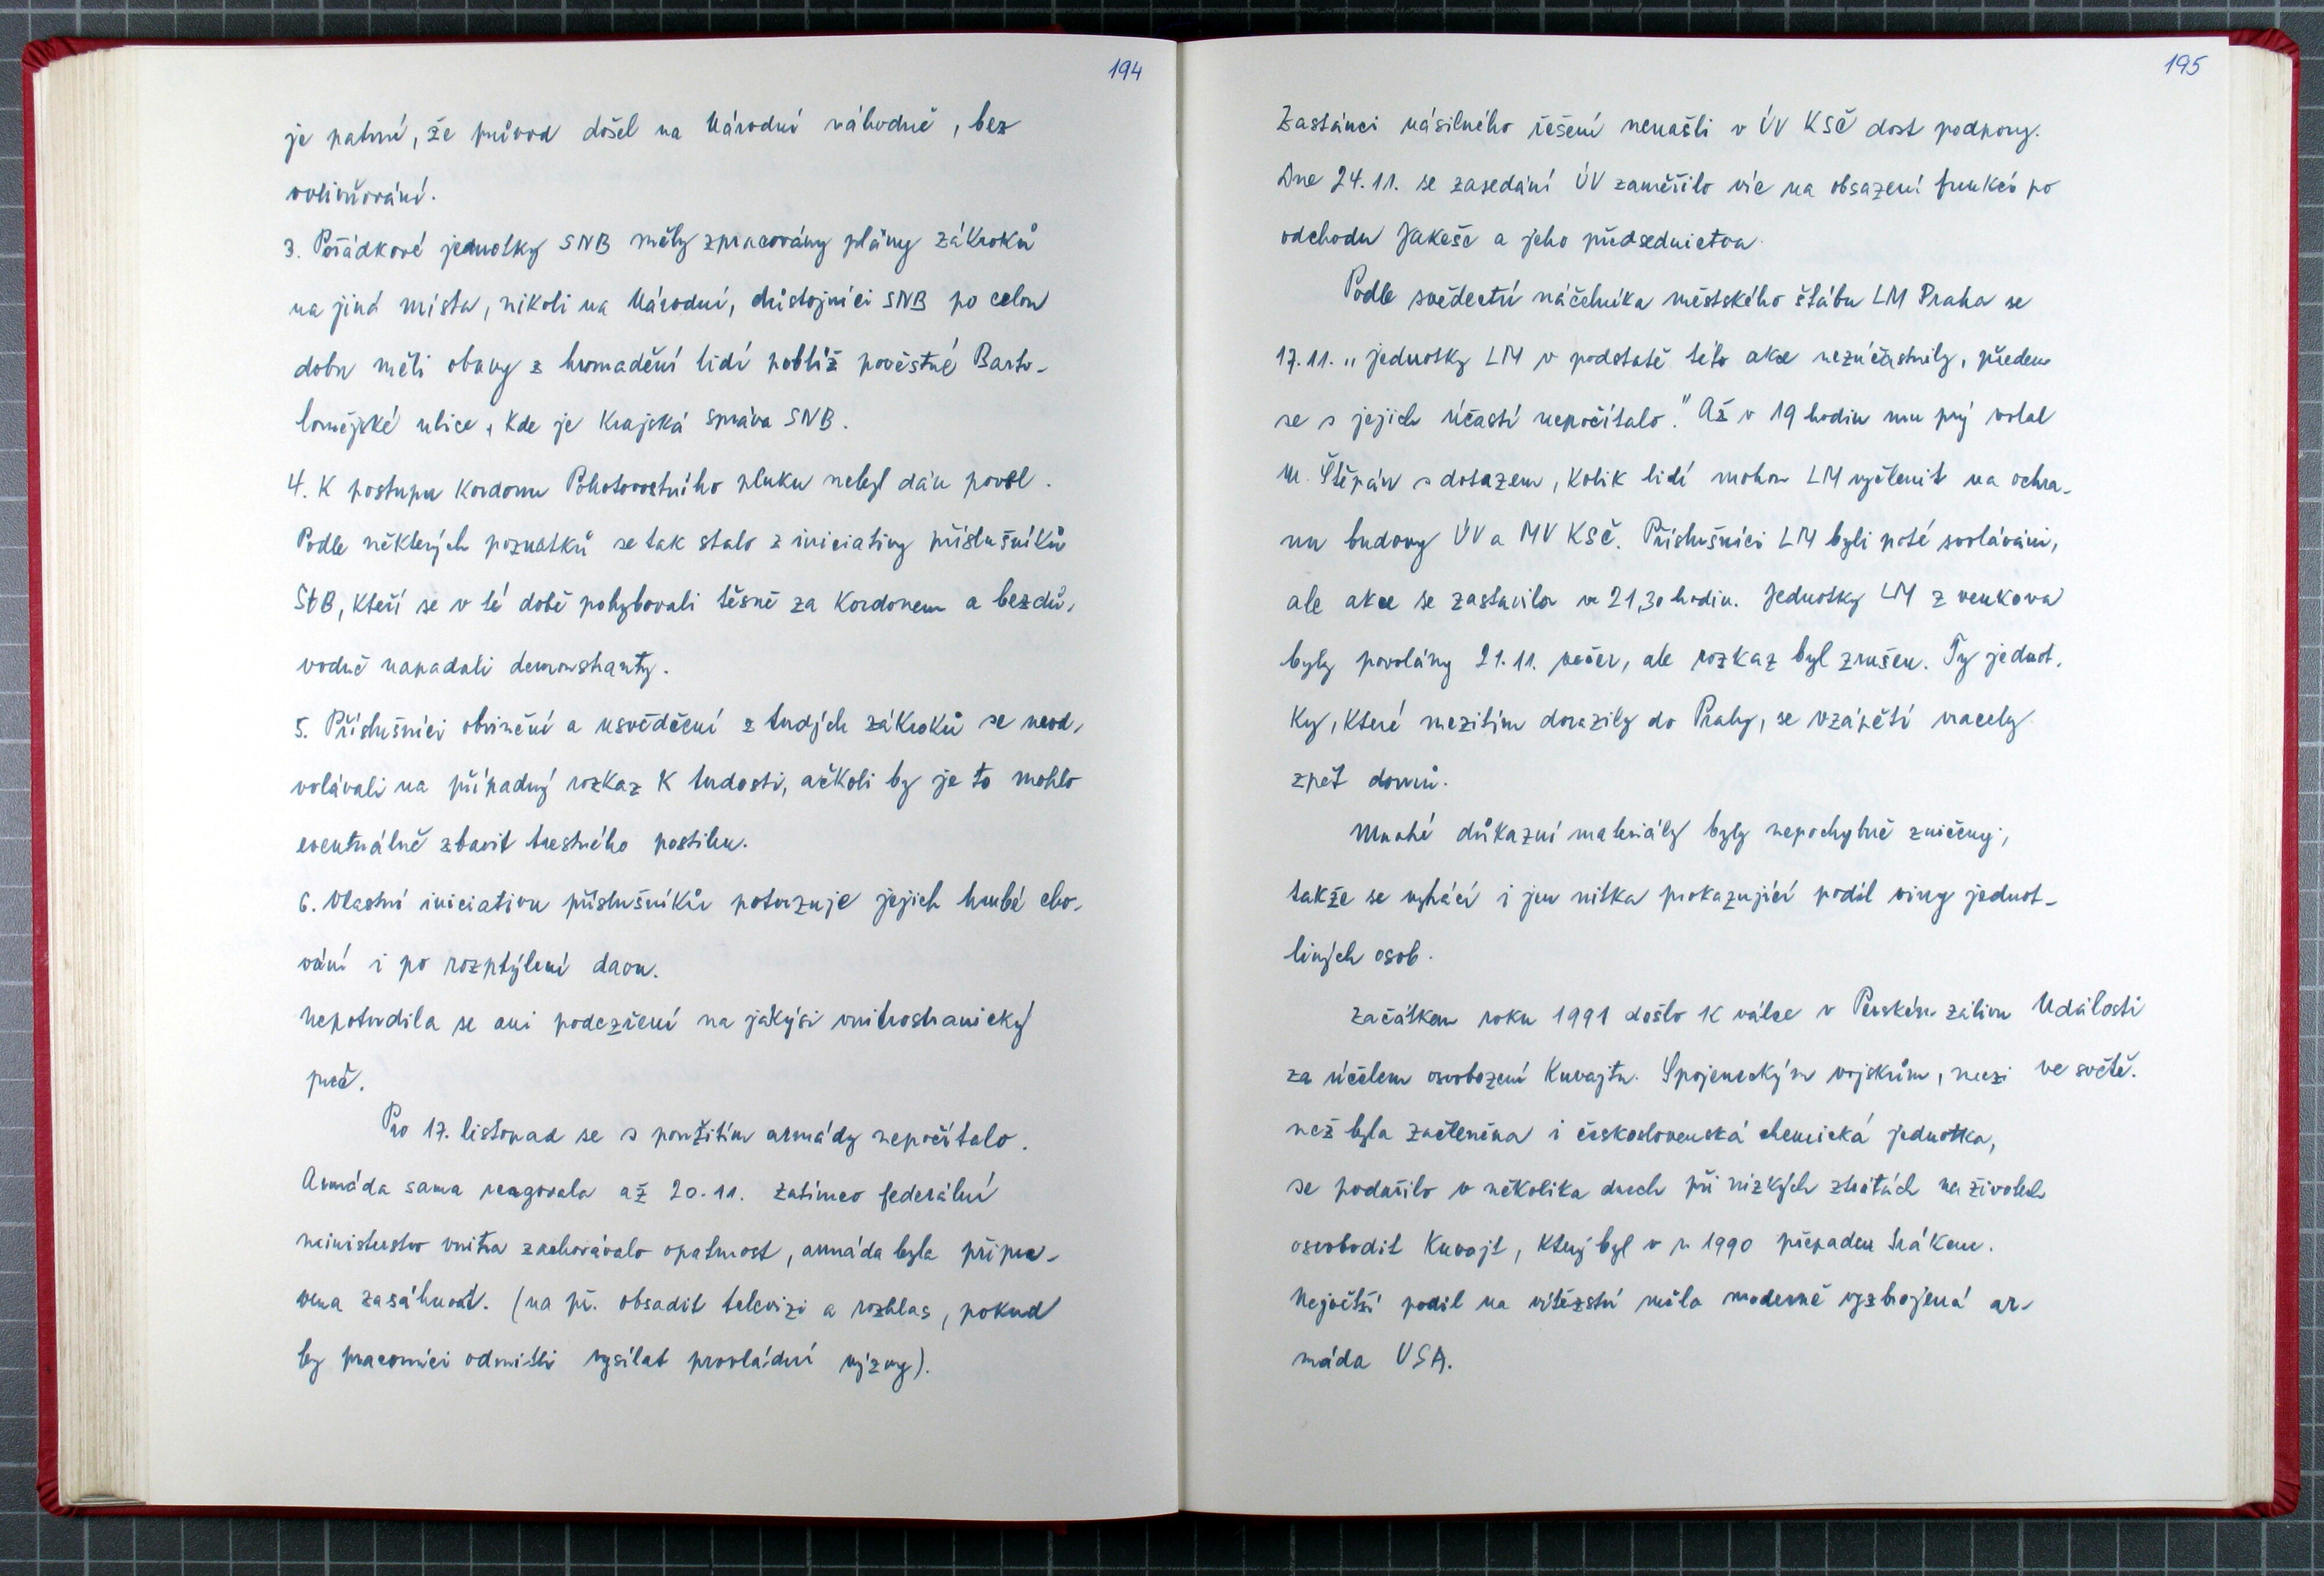 194
je patrné, že průvod došel na Národní náhodně, bez
ovlivňování.
3. Pořádkové jednotky SNB měly zpracovány plány zákroků
na jiná místa, nikoli na Národní, důstojníci SNB po celou
dobu měli obavy z hromadění lidí poblíž pověstné Barto-
lomějské ulice, kde je Krajská správa SNB.
4. K postupu kordonu Pohotovostního pluku nebyl dán povel.
Podle některých poznatků se tak stalo z iniciativy příslušníků
StB, kteří se v té době pohybovali těsně za kordonem a bezdů-
vodně napadali demonstranty.
5. Příslušníci obvinění a usvědčení z tvrdých zákroků se neod-
volávali na případný rozkaz k tvrdosti, ačkoli by je to mohlo
eventuálně zbavit trestného postihu.
6. Vlastní iniciativu příslušníků potvrzuje jejich hrubé cho-
vání i po rozptýlení davu.
Nepotvrdila se ani podezření na jakýsi vnitrostranický
puč.
Pro 17. listopad se s použitím armády nepočítalo.
Armáda sama reagovala až 20.11. Zatímco federální
ministerstvo vnitra zachovávalo opatrnost, armáda byla připra-
vena zasáhnout. (na př. obsadit televizi a rozhlas, pokud
by pracovníci odmítli vysílat provládní výzvy).
195
Zastánci násilného řešení nenašli v ÚV KSČ dost podpory.
Dne 24.11. se zasedání ÚV zaměřilo víc na obsazení funkcí po
odchodu Jakeše a jeho předsednictva.
Podle svědectví náčelníka městského štábu LM Praha se
17.11. „jednotky LM v podstatě této akce nezúčastnily, předem
se s jejich účastí nepočítalo." Až v 19 hodin mu prý volal
M. Štěpán s dotazem, kolik lidí mohou LM vyčlenit na ochra-
nu budovy ÚV a MV KSČ. Příslušníci LM byli poté svoláváni,
ale akce se zastavila ve 21,30 hodin. Jednotky LM z venkova
byly povolány 21.11. večer, ale rozkaz byl zrušen. Ty jednot-
ky, které mezitím dorazily do Prahy, se vzápětí vracely
zpět domů.
Mnohé důkazní materiály byly nepochybně zničeny,
takže se vytrácí i jen nitka prokazující podíl viny jednot-
livých osob.
Začátkem roku 1991 došlo k válce v Perském zálivu Události
za účelem osvobození Kuvajtu. Spojeneckým vojskům, mezi ve světě.
něž byla začleněna i československá chemická jednotka,
se podařilo v několika dnech při nízkých ztrátách na životech
osvobodit Kuvajt, který byl v r. 1990 přepaden Irákem.
Největší podíl na vítězství měla moderně vyzbrojená ar-
máda USA.